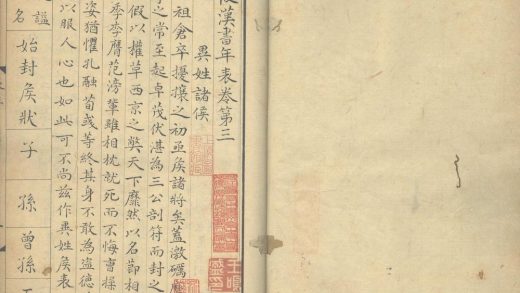 後漢書年表卷第三
異姓諸侯
祖倉卒擾攘之初亟矦諸將矣蓋激礪
之常至起卓茂伏湛為三公剖符而封之
假以權草西京之獘天下靡然以名節相
季李膺范滂輩雖相枕就死而不悔曹操
姿猶懼孔融荀彧等終其身不敢為盜德
以服人心也如此可不尚兹作異姓矦表
謚
名
始封矦狀
子
孫
曾孫